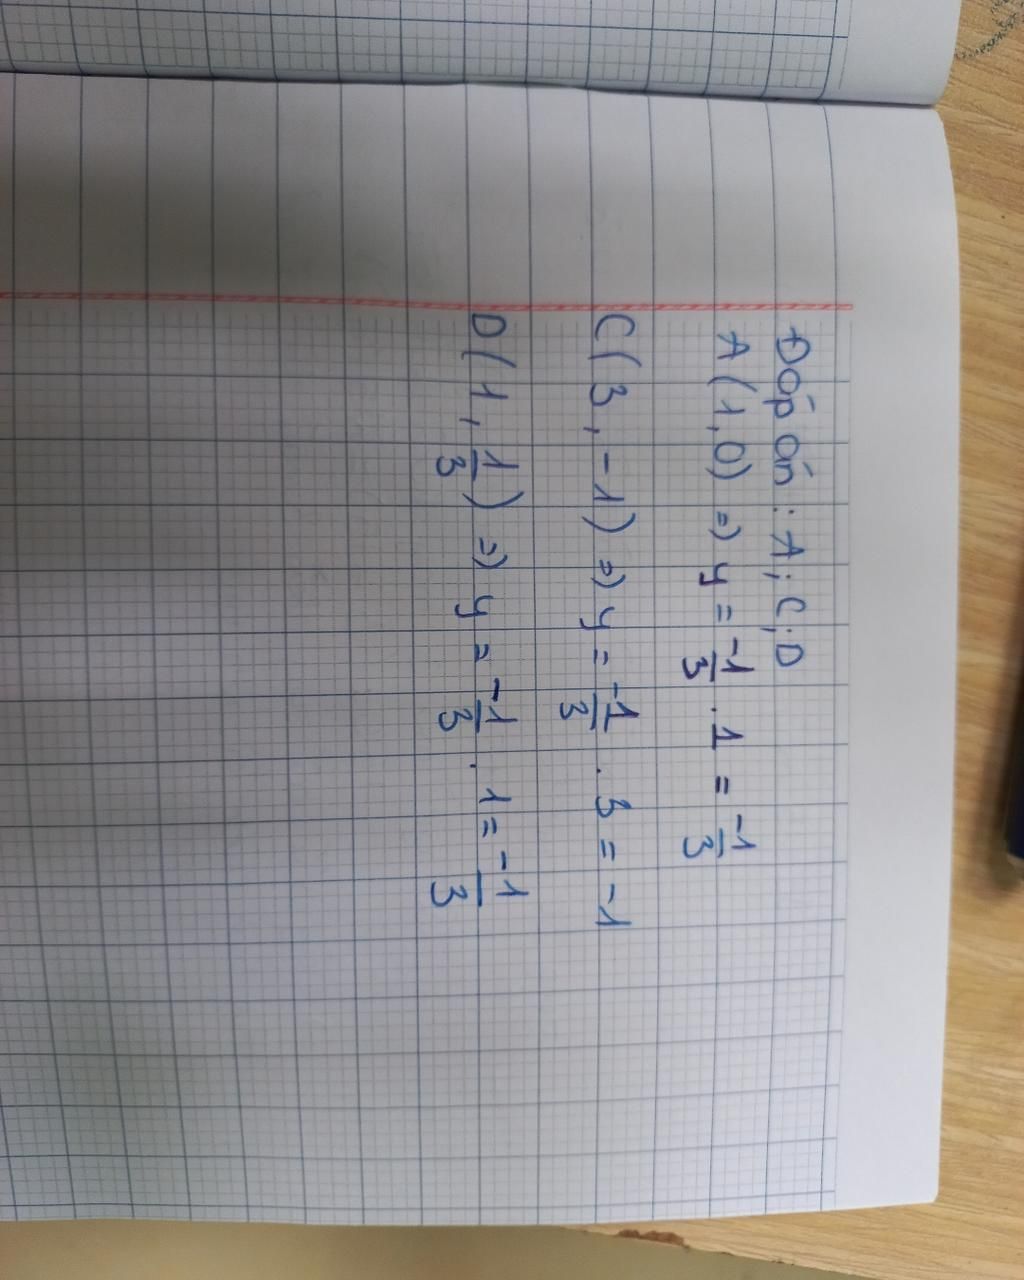 Đáp án : A ; C ; D
A ( 1 , 0 ) => y = -1/3 . 1 = -1/3
C ( 3 , -1 ) => y = -1/3 . 3 = -1
D ( 1 , 1/3 ) => y = -1/3 . 1 = -1/3